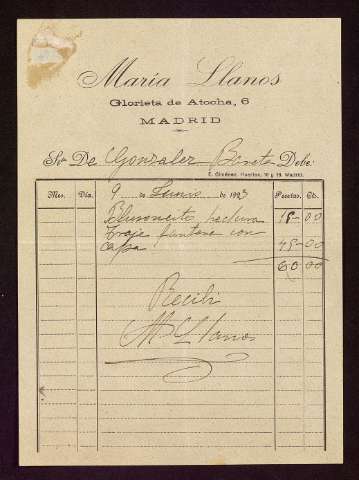 María Llanos
Glorieta de Atocha, 6
MADRID
Sr. De Gonzalez Debe:
E. Giménez, Huertas, 16 y 18. Madrid.
Mes. Día. 9 de Junio de 1923 Pesetas. Cts.
hechura 15-00
Traje fantasia con
capa 45-00
60 00
Recibí
M Llanos